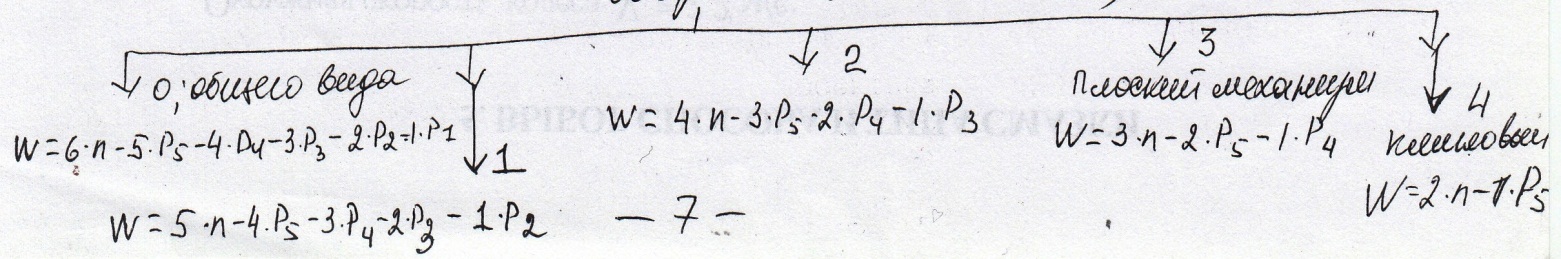 0; общего вида
W=6·n-5·P5-4·P4-3·P3-2·P2-1·P1
1
W=5·n-4·P5-3·P4-2·P3-1·P2
2
W=4·n-3·P5-2·P4-1·P3
3
Плоский механизм
W=3·n-2·P5-1·P4
4
клиновый
W=2·n-1·P5
- 7 -